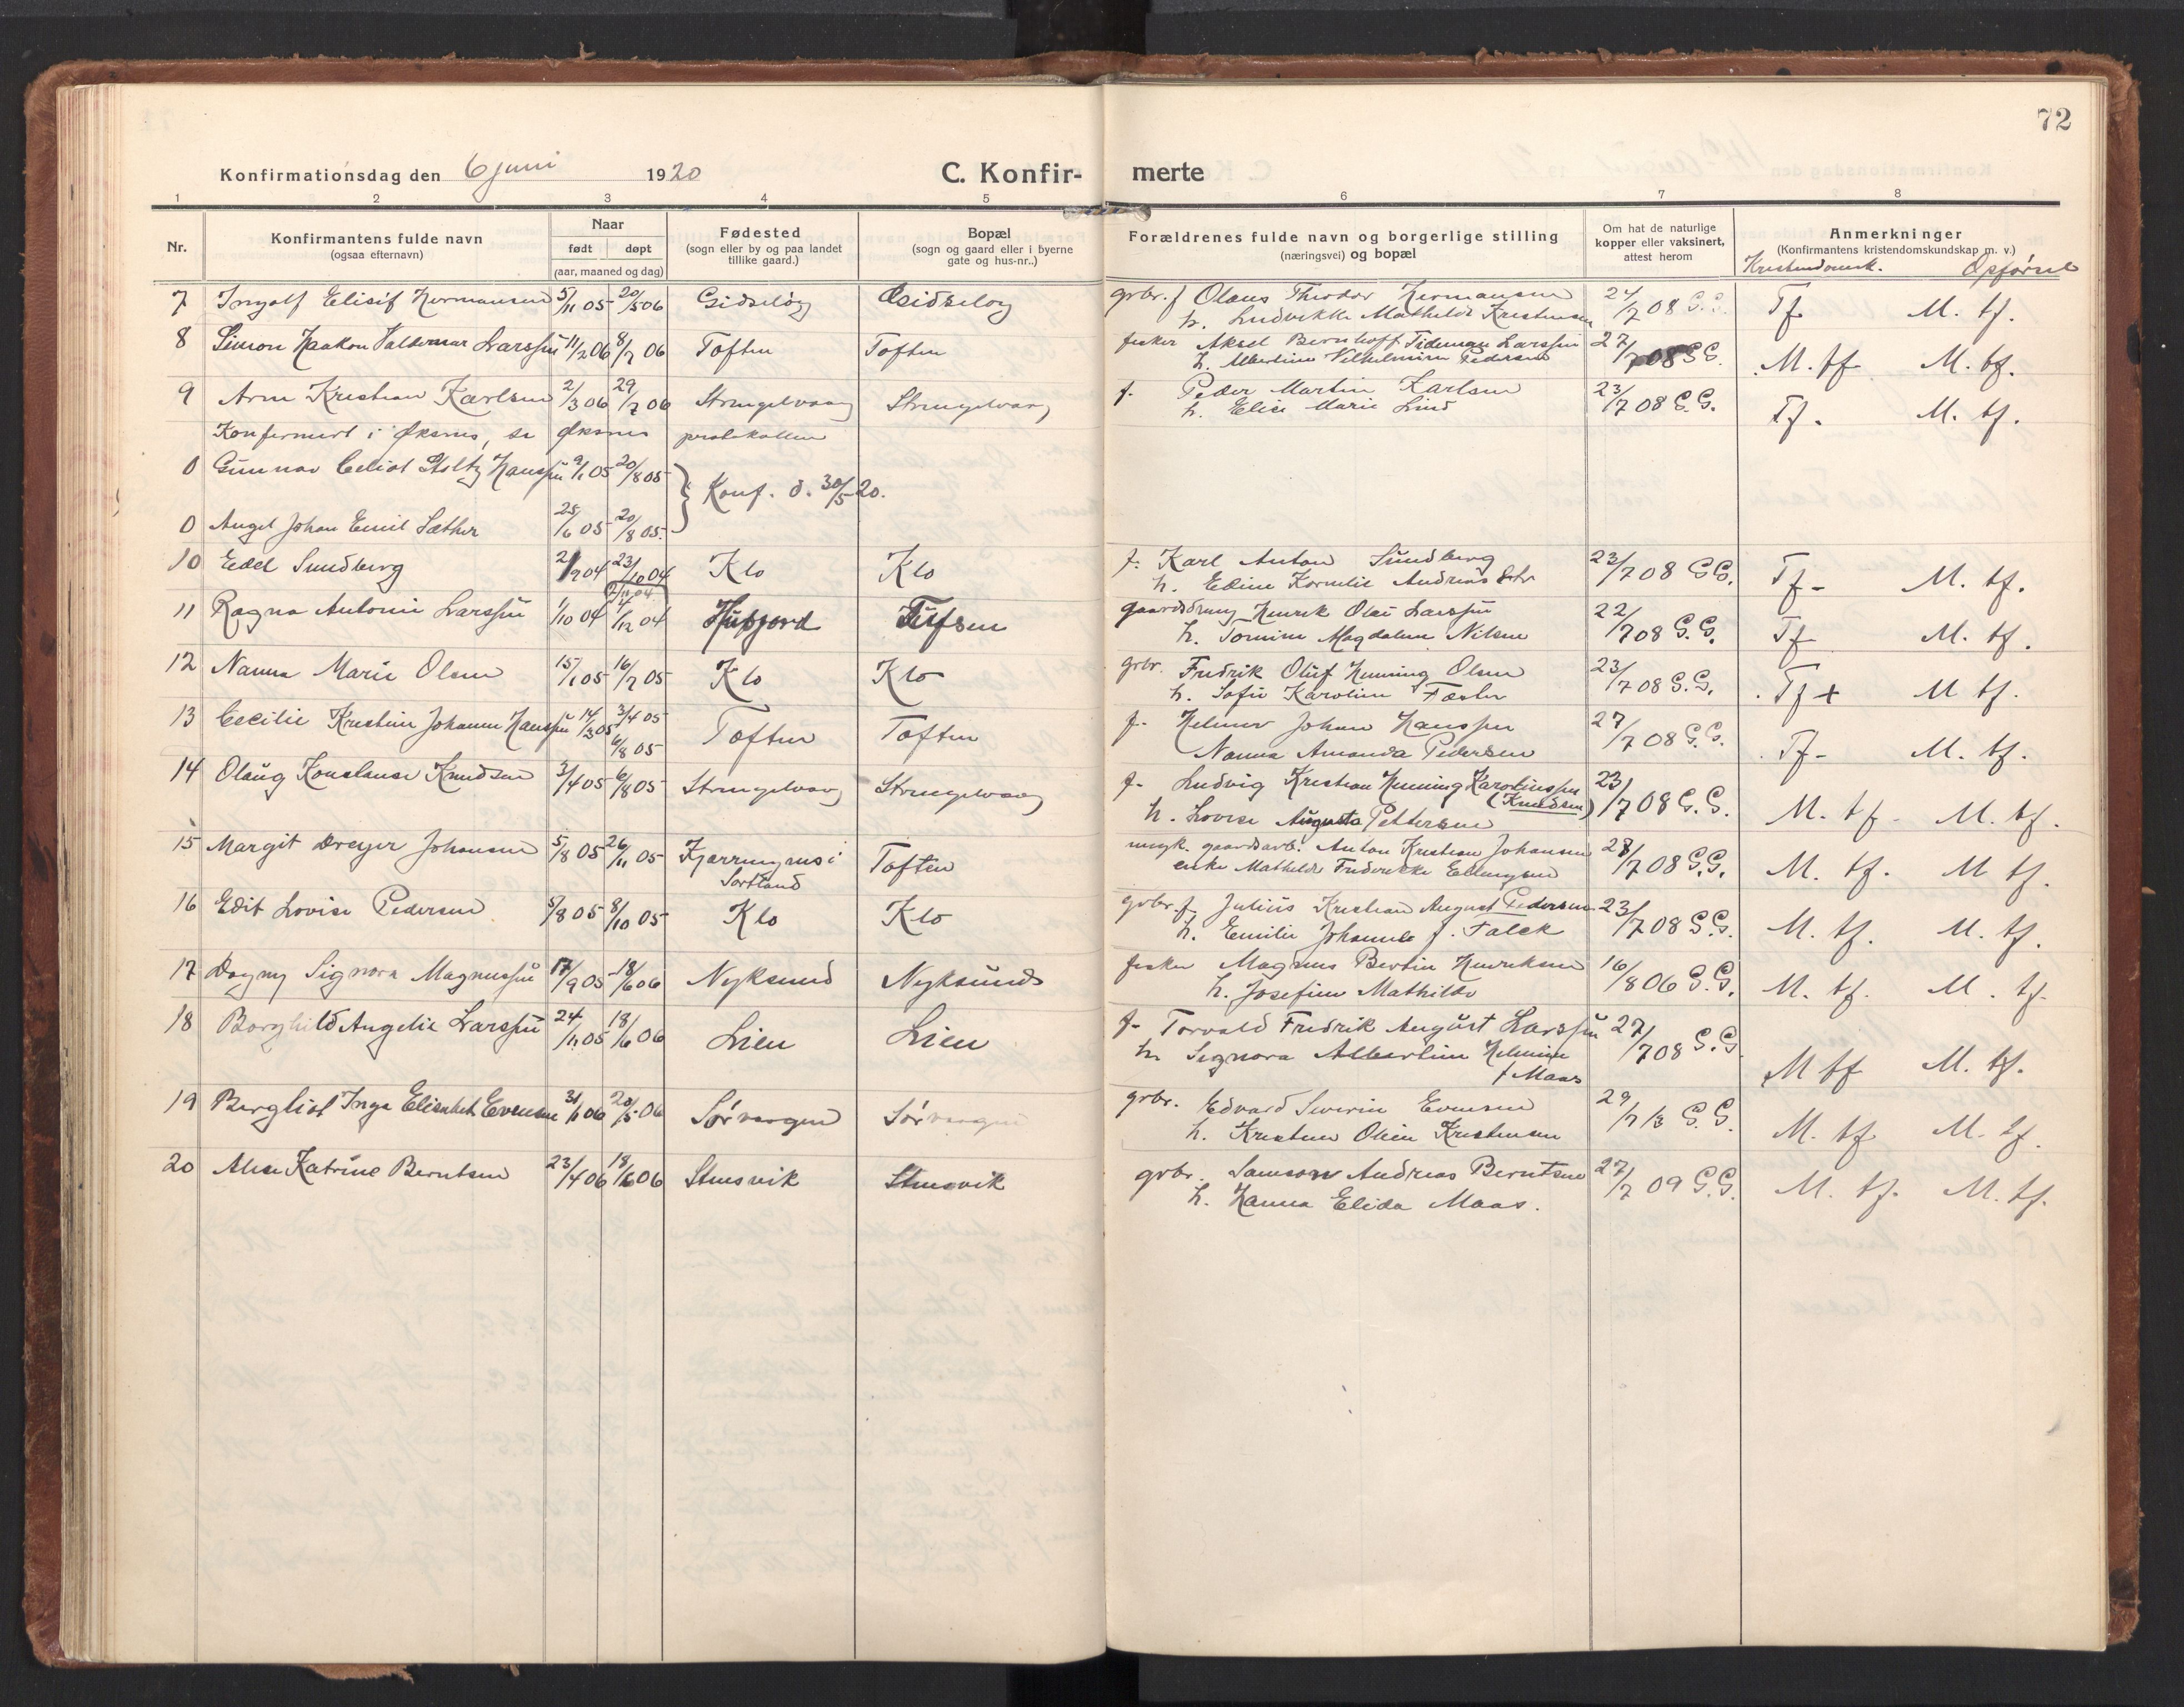 72
Konfirmationsdag den 6 juni 1920
C. Konfir-
merte
1 2 3 4 5 6 7 8
Nr.
Konfirmantens fulde navn
(ogsaa efternavn)
Naar
født døpt
(aar, maaned og dag)
Fødested
(sogn eller by og paa landet
tillike gaard.)
Bopæl
(sogn og gaard eller i byerne
gate og hus-nr..)
Forældrenes fulde navn og borgerlige stilling
(næringsvei) og bopæl
Om hat de naturlige
kopper eller vaksinert,
attest herom
Anmerkninger
(Konfirmantens kristendomskundskap m. v.)
Kristendomsk. Opførsel
7 Ingolf Elisif Hermansen 5/11 05 20/5 06 Gidsløy Gidsløy grbr. f Olaus Theodor Hermansen 24/7 08 G.G. Tf M. tf.
h. Ludvikke Mathilde Kristensen
8 Simon Haakon Valdemar Larssen 11/2 06 8/7 06 Toften Toften fisker Aksel Bernhoff Tideman Larssen 27/7 08 G.G. M. tf M. tf.
h. Albertine Vilhelmine Pedersen
9 Arne Kristian Karlsen 2/3 06 29/7 06 Strengelvaag Strengelvaag f. Peder Martin Karlsen 23/7 08 G.G. Tf. M. tf.
h. Elise Marie Lind
Konfirmert i Øksnes, se Øksnes protokollen
0 Gunnar Celiot Stoltz Hanssen 9/1 05 20/8 05
Konf. d. 30/5 20.
0 Angel Johan Emil Sæther 25/6 05 20/8 05.
10 Edel Sundberg 2/9 04 23/10 04 Klo Klo f. Karl Anton Sundberg 23/7 08 G.G. Tf- M. tf.
h. Eline Kornelie Andreasdtr
11 Ragna Antonie Larssen 1/10 04 4/12 04 Husjord Tufsen gaardsdreng Henrik Olai Larssen 22/7 08 G.G. Tf M. tf.
h. Tomine Magdalene Nilsen
12 Nanna Marie Olsen 15/1 05 16/7 05 Klo Klo grbr. Fredrik Oluf Henning Olsen 23/7 08 G.G. Tf+ M tf.
h. Sofie Karoline Fæster
13 Cecilie Kristine Johanne Hanssen 14/3 05 3/4 05 Toften Toften f. Helmer Johan Hanssen 27/7 08 G.G. Tf- M. tf.
6/8 05 Nanna Amanda Pedersen
14 Olaug Konstanse Knudsen 3/4 05 6/8 05 Strengelvaag Strengelvaag f. Ludvig Kristian Henning Karolinssen 23/7 08 G.G. M. tf- M. tf.
(Knudsen)
h. Lovise Augusta Pettersen
15 Margit Dreyer Johansen 5/8 05 26/11 05 Kjærringnes i Toften ungk. gaardsarb. Anton Kristian Johansen 28/7 08 G.G. M. tf. M tf.
Sortland enke Mathilde Frederikke Ellingsen
16 Edit Lovise Pedersen 5/8 05 8/10 05 Klo Klo grbr. f. Julius Kristian August Pedersen 23/7 08 G.G. M. tf. M. tf.
h. Emilie Johanne f. Falck
17 Dagny Signora Magnussen 17/9 05 18/6 06 Nyksund Nyksund fisker Magnus Bertin Henriksen 16/8 06 G.G. M. tf. M. tf.
h. Josefine Mathilde
18 Borghild Angelie Larssen 24/11 05 18/6 06 Lien Lien f. Torvald Fredrik August Larssen 27/7 08 G.G. M tf M. tf.
h. Signora Albertine Helmine
f Maas
19 Bergliot Inga Elisabet Evensen 31/1 06 20/5 06 Sørvaagen Sørvaagen grbr. Edvard Severin Evensen 29/7 13 G.G. M. tf M. tf.
h. Kristine Oline Kristensen
20 Alise Katrine Berntsen 23/4 06 18/6 06 Stensvik Stensvik grbr. Samson Andreas Berntsen 27/7 09 G.G. M. tf. M. tf.
h. Hanna Elida Maas.